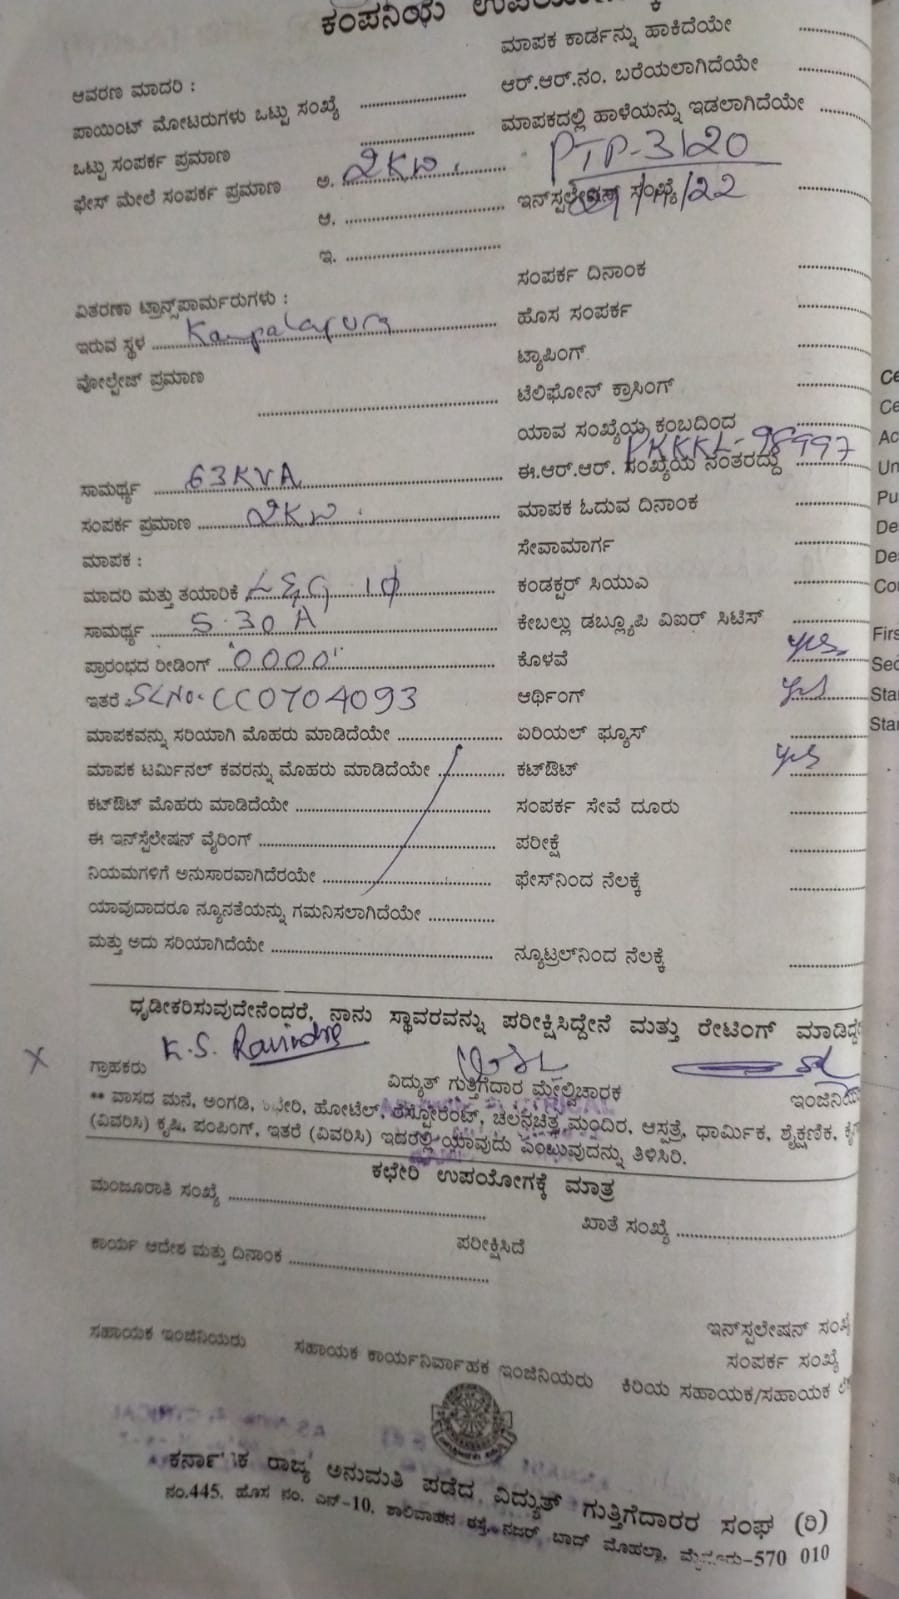 ಕಂಪನಿಯ
ಮಾಪಕ ಕಾರ್ಡನ್ನು ಹಾಕಿದೆಯೇ
ಆವರಣ ಮಾದರಿ :
ಆರ್.ಆರ್.ನಂ. ಬರೆಯಲಾಗಿದೆಯೇ
ಪಾಯಿಂಟ್ ಮೋಟರುಗಳು ಒಟ್ಟು ಸಂಖ್ಯೆ
ಮಾಪಕದಲ್ಲಿ ಹಾಳೆಯನ್ನು ಇಡಲಾಗಿದೆಯೇ
ಒಟ್ಟು ಸಂಪರ್ಕ ಪ್ರಮಾಣ
PTP-3120
ಫೇಸ್ ಮೇಲೆ ಸಂಪರ್ಕ ಪ್ರಮಾಣ ಅ. 2KW
ಇನ್‌ಸ್ಪಲೇಷನ್ ಸಂಖ್ಯೆ
ಆ.
ಇ.
ಸಂಪರ್ಕ ದಿನಾಂಕ
ವಿತರಣಾ ಟ್ರಾನ್ಸ್‌ಪಾರ್ಮರುಗಳು :
ಹೊಸ ಸಂಪರ್ಕ
ಇರುವ ಸ್ಥಳ Kampalapura
ಟ್ಯಾಪಿಂಗ್
ವೋಲ್ಟೇಜ್ ಪ್ರಮಾಣ
ಟೆಲಿಫೋನ್ ಕ್ರಾಸಿಂಗ್
ಯಾವ ಸಂಖ್ಯೆಯ ಕಂಬದಿಂದ
ಸಾಮರ್ಥ್ಯ 63KVA
ಈ.ಆರ್.ಆರ್. ಸಂಖ್ಯೆಯ ನಂತರದ್ದು
ಸಂಪರ್ಕ ಪ್ರಮಾಣ 2KW
ಮಾಪಕ ಓದುವ ದಿನಾಂಕ
ಮಾಪಕ :
ಸೇವಾಮಾರ್ಗ
ಮಾದರಿ ಮತ್ತು ತಯಾರಿಕೆ L&G 1ϕ
ಕಂಡಕ್ಟರ್ ಸಿಯುಎ
ಸಾಮರ್ಥ್ಯ 5-30A
ಕೇಬಲ್ಲು ಡಬ್ಲ್ಯೂಪಿ ವಿಐರ್ ಸಿಟಿಸ್
ಪ್ರಾರಂಭದ ರೀಡಿಂಗ್ "0000"
ಕೊಳವೆ yes
ಇತರೆ : SLNo: CC0704093
ಆರ್ಥಿಂಗ್ yes
ಮಾಪಕವನ್ನು ಸರಿಯಾಗಿ ಮೊಹರು ಮಾಡಿದೆಯೇ
ಏರಿಯಲ್ ಫ್ಯೂಸ್
ಮಾಪಕ ಟರ್ಮಿನಲ್ ಕವರನ್ನು ಮೊಹರು ಮಾಡಿದೆಯೇ
ಕಟ್‌ಔಟ್ yes
ಕಟ್‌ಔಟ್ ಮೊಹರು ಮಾಡಿದೆಯೇ
ಸಂಪರ್ಕ ಸೇವೆ ದೂರು
ಈ ಇನ್‌ಸ್ಪೆಲೇಷನ್ ವೈರಿಂಗ್
ಪರೀಕ್ಷೆ
ನಿಯಮಗಳಿಗೆ ಅನುಸಾರವಾಗಿದೆರಯೇ
ಫೇಸ್‌ನಿಂದ ನೆಲಕ್ಕೆ
ಯಾವುದಾದರೂ ನ್ಯೂನತೆಯನ್ನು ಗಮನಿಸಲಾಗಿದೆಯೇ
ಮತ್ತು ಅದು ಸರಿಯಾಗಿದೆಯೇ
ನ್ಯೂಟ್ರಲ್‌ನಿಂದ ನೆಲಕ್ಕೆ
ಧೃಡೀಕರಿಸುವುದೇನೆಂದರೆ, ನಾನು ಸ್ಥಾವರವನ್ನು ಪರೀಕ್ಷಿಸಿದ್ದೇನೆ ಮತ್ತು ರೇಟಿಂಗ್
X ಗ್ರಾಹಕರು K.S. Ravindra
ವಿದ್ಯುತ್ ಗುತ್ತಿಗೆದಾರ ಮೇಲ್ವಿಚಾರಕ
** ವಾಸದ ಮನೆ, ಅಂಗಡಿ, ಹೋಟೆಲ್, ರೆಸ್ಟೋರೆಂಟ್, ಚಲನಚಿತ್ರ ಮಂದಿರ, ಆಸ್ಪತ್ರೆ, ಧಾರ್ಮಿಕ, ಶೈಕ್ಷಣಿಕ,
(ವಿವರಿಸಿ) ಕೃಷಿ, ಪಂಪಿಂಗ್, ಇತರೆ (ವಿವರಿಸಿ) ಇದರಲ್ಲಿ ಯಾವುದು ಎಂಬುವುದನ್ನು ತಿಳಿಸಿರಿ.
ಕಛೇರಿ ಉಪಯೋಗಕ್ಕೆ ಮಾತ್ರ
ಮಂಜೂರಾತಿ ಸಂಖ್ಯೆ
ಖಾತೆ ಸಂಖ್ಯೆ
ಕಾರ್ಯ ಆದೇಶ ಮತ್ತು ದಿನಾಂಕ
ಪರೀಕ್ಷಿಸಿದೆ
ಇನ್‌ಸ್ಪಲೇಷನ್
ಸಹಾಯಕ ಇಂಜಿನಿಯರು
ಸಂಪರ್ಕ ಸಂಖ್ಯೆ
ಸಹಾಯಕ ಕಾರ್ಯನಿರ್ವಾಹಕ ಇಂಜಿನಿಯರು
ಕಿರಿಯ ಸಹಾಯಕ/ಸಹಾಯಕ
ರಾಜ್ಯ ಅನುಮತಿ ಪಡೆದ ವಿದ್ಯುತ್ ಗುತ್ತಿಗೆದಾರರ ಸಂಘ (ರಿ)
ನಂ.445, ಹೊಸ ನಂ. ಎನ್-10, ಶಾಲಿವಾಹನ ರಸ್ತೆ, ನಜರ್ ಬಾದ್ ಮೊಹಲ್ಲಾ, ಮೈಸೂರು-570 010